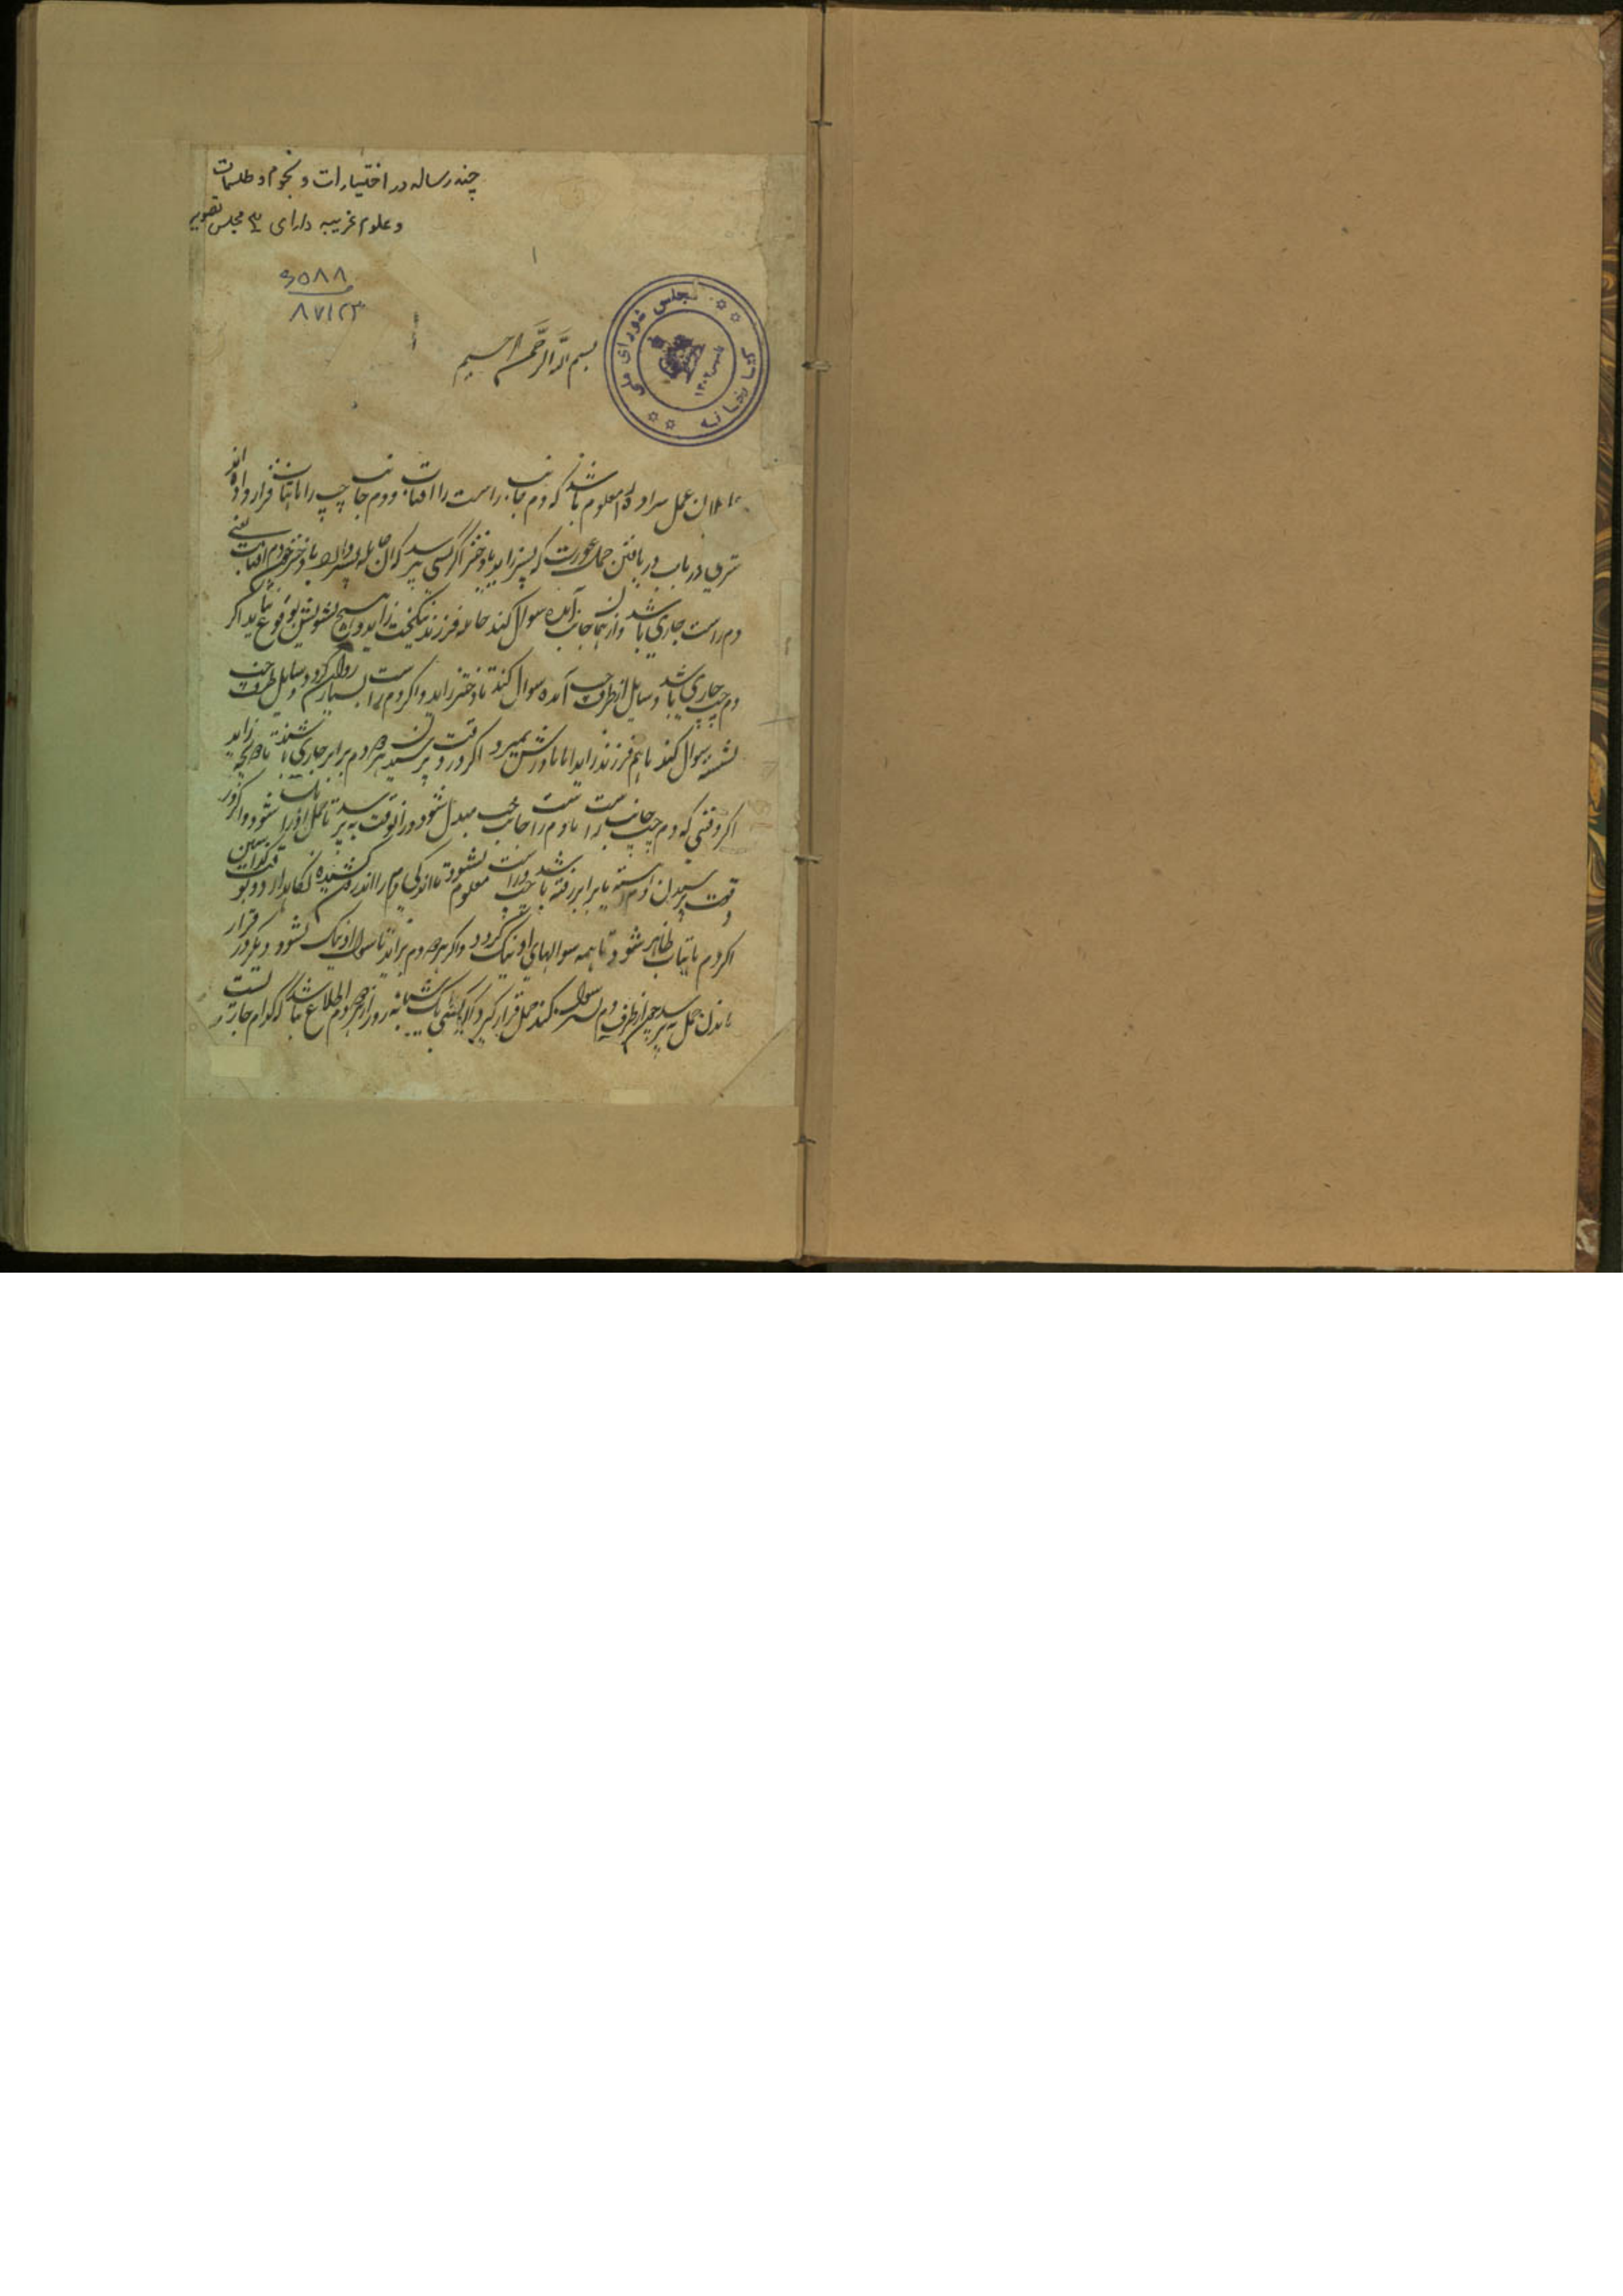 چند رساله در اختیارات و نجوم و طلسمات
و علوم غریبه دارای ۳ مجلس تصویر
۱
۹۰۸۸
۸۷۱۲۳
مجلس شورای ملی
کتابخانه
تاسیس ۱۳۰۲
بسم الله الرحمن الرحیم
عاملان عمل معلوم باشد که دم جانب راست را آفتاب و دم جانب چپ را ماهتاب قرار داده اند
در باب دریافتن حمل عورت که پسر زاید یا دختر اگر کسی پرسد که آن حامله یا دختر دم آفتاب یعنی
دم راست جاری باشد و از همان جانب آمده سوال کند حامله فرزند نیکبخت زاید و هیچ تشویش بوقوع نیاید اگر
دم چپ جاری باشد و سایل از طرف چپ آمده سوال کند تا دختر زاید و اگر دم راست بسیار روان گردد و سایل طرف چپ
نشسته سوال کند تا هم فرزند زاید اما مادرش بمیرد اگر در وقت پرسیدن هر دو دم برابر جاری باشند تا زاید
اگر وقتی که دم چپ جانب راست یا دم راست جانب چپ مبدل شود در آنوقت بپرسد تا حمل او شود و اگر در
وقت پرسیدن دم برابر رفته باشد چپ و راست معلوم نشود تا اندکی دم را اندرون کشیده نگاهدارد
اگر دم ماهتاب ظاهر شود تا همه سوالهای او نیک گردد و اگر هر دو دم براند تا سوال او نیک نشود دیگر در قرار
ماندن حمل بپرسد چون از طرف دم سوال کند حمل قرار گیرد اگر کسی یک شبانه روز از هر دو دم اطلاع باشد که کدام جاریست